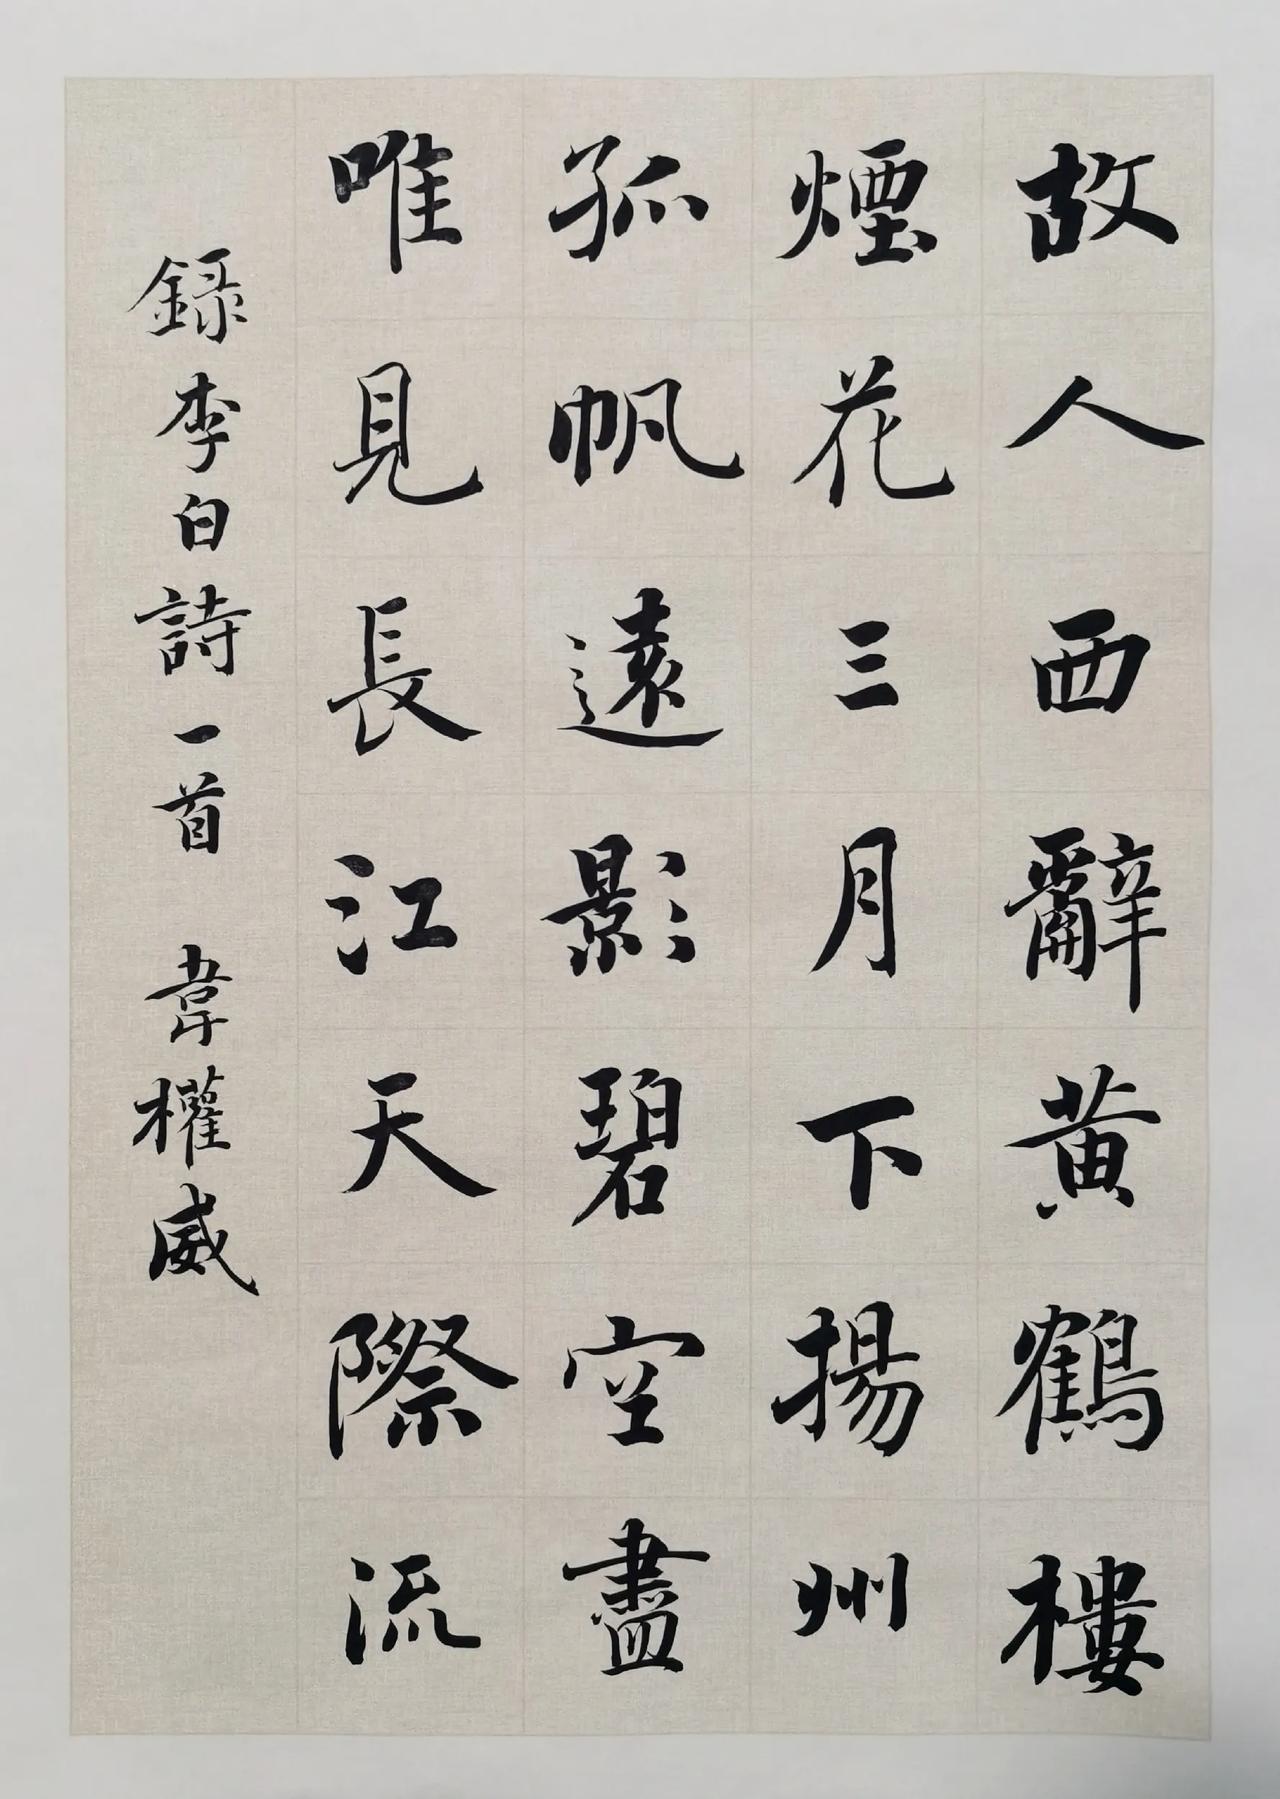 故人西辭黄鶴樓
煙花三月下揚州
孤帆遠影碧空盡
唯見長江天際流
録李白詩一首 韋權威